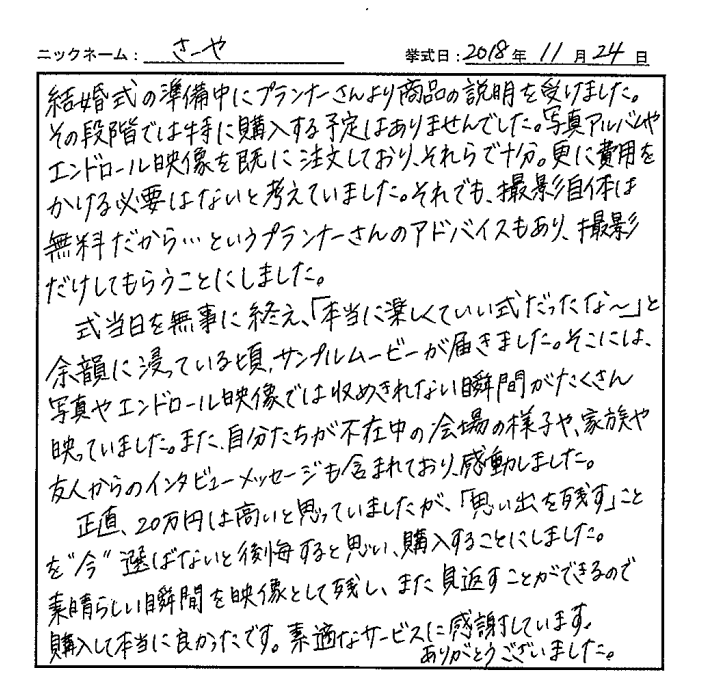 ニックネーム： さーや 挙式日：2018年 11月24日
結婚式の準備中にプランナーさんより商品の説明を受けました。
その段階では特に購入する予定はありませんでした。写真アルバムや
エンドロール映像を既に注文しており、それらで十分。更に費用を
かける必要はないと考えていました。それでも、撮影自体は
無料だから…というプランナーさんのアドバイスもあり、撮影
だけしてもらうことにしました。
式当日を無事に終え、「本当に楽しくていい式だったな～」と
余韻に浸っている頃、サンプルムービーが届きました。そこには、
写真やエンドロール映像では収めきれない瞬間がたくさん
映っていました。また、自分たちが不在中の会場の様子や、家族や
友人からのインタビューメッセージも含まれており、感動しました。
正直、20万円は高いと思っていましたが、「思い出を残す」こと
を“今”選ばないと後悔すると思い、購入することにしました。
素晴らしい瞬間を映像として残し、また見返すことができるので
購入して本当に良かったです。素適なサービスに感謝しています。
ありがとうございました。